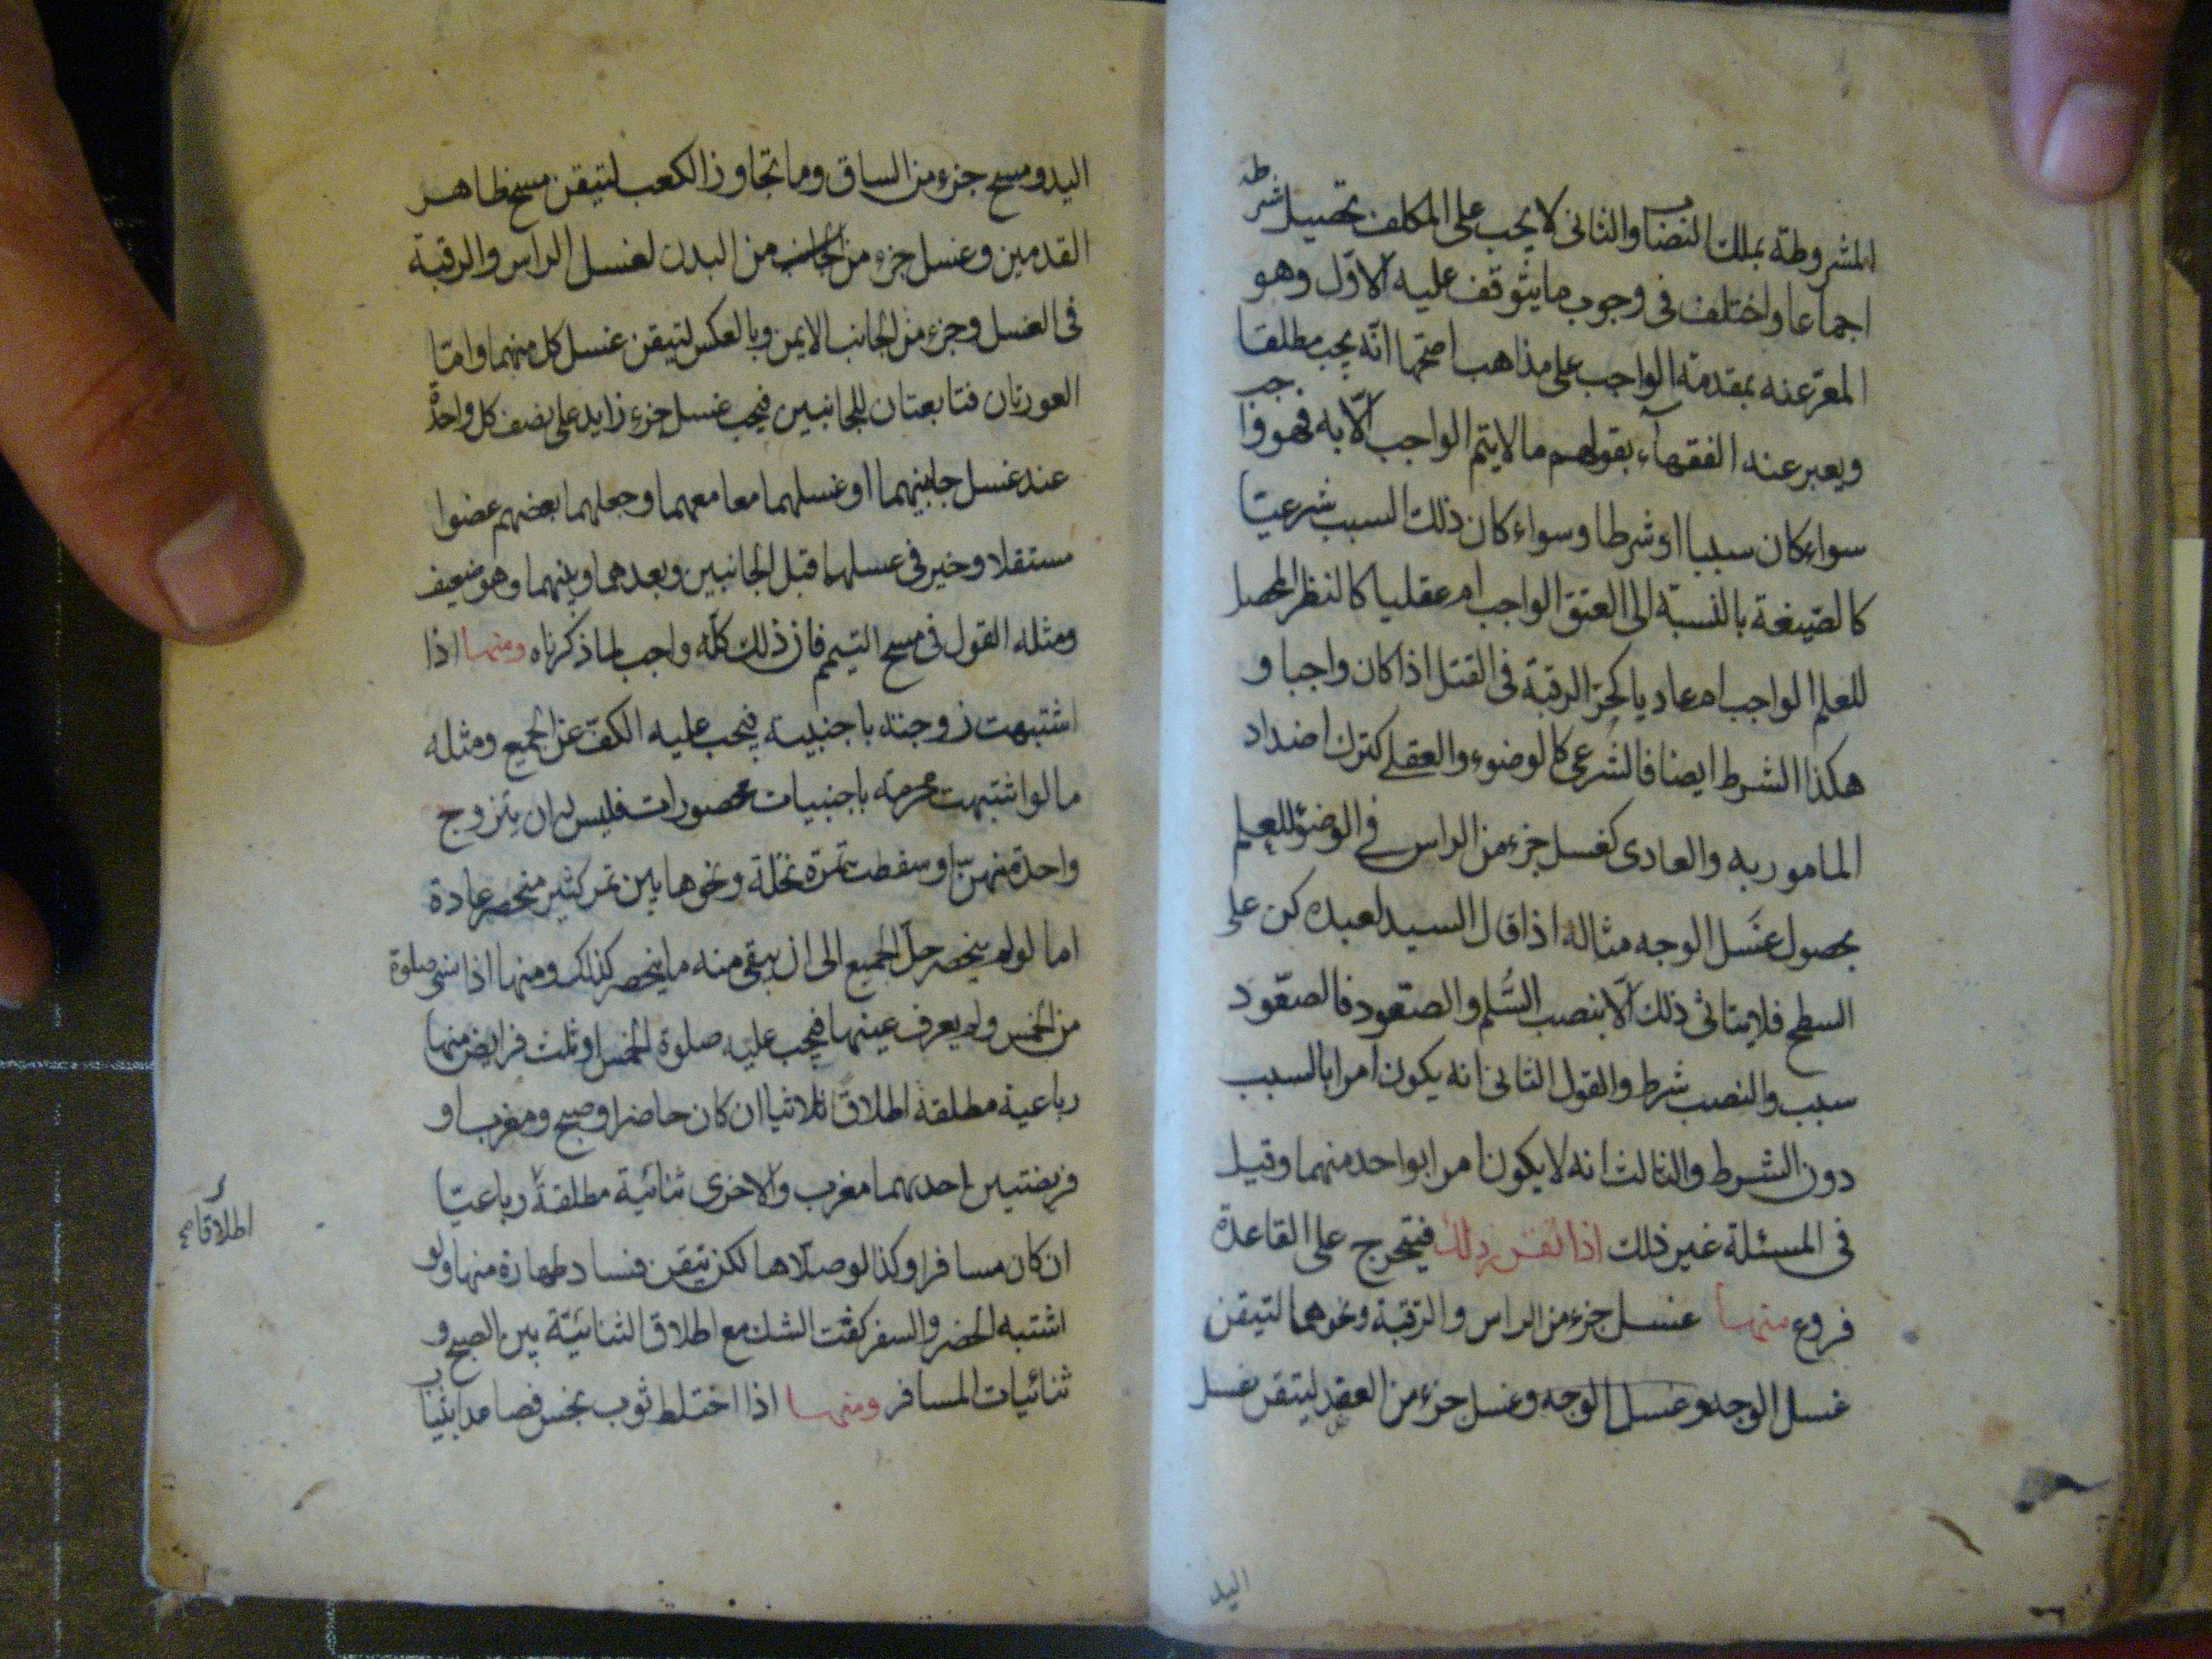 المشروطة بملك النصاب والثاني لا يجب على المكلف تحصيل شرطه
اجماعا واختلف في وجوب ما يتوقف عليه الاول وهو
المعبر عنه بمقدمة الواجب على مذاهب اصحها انه يجب مطلقا
ويعبر عنه الفقهاء بقولهم ما لا يتم الواجب الا به فهو واجب
سواء كان سببا او شرطا وسواء كان ذلك السبب شرعيا
كالصيغة بالنسبة الى العتق الواجب ام عقليا كالنظر المحصل
للعلم الواجب ام عاديا كحز الرقبة في القتل اذا كان واجبا و
هكذا الشرط ايضا فالشرعي كالوضوء والعقلي كترك اضداد
المامور به والعادي كغسل جزء من الراس في الوضوء للعلم
بحصول غسل الوجه مثاله اذا قال السيد لعبده كن على
السطح فلا يتاتى ذلك الا بنصب السلم والصعود فالصعود
سبب والنصب شرط والقول الثاني انه يكون امرا بالسبب
دون الشرط والثالث انه لا يكون امرا بواحد منهما وقيل
في المسئلة غير ذلك اذا تقرر ذلك فيتخرج على القاعدة
فروع منها غسل جزء من الراس والرقبة ونحوهما لتيقن
غسل الوجه وغسل الوجه وغسل جزء من العضد ليتقن غسل
اليد
اليد ومسح جزء من الساق وما تجاوز الكعب لتيقن مسح ظاهر
القدمين وغسل جزء من الجانب من البدن لغسل الراس والرقبة
في الغسل وجزء من الجانب الايمن وبالعكس لتيقن غسل كل منهما واما
العورتان فتابعتان للجانبين فيجب غسل جزء زايد على نصف كل واحدة
عند غسل جانبيهما او غسلهما معا معهما وجعلهما بعضهم عضوا
مستقلا وخير في غسلهما قبل الجانبين وبعدهما وبينهما وهو ضعيف
ومثله القول في مسح التيمم فان ذلك كله واجب لما ذكرناه ومنها اذا
اشتبهت زوجته باجنبية فيجب عليه الكف عن الجميع ومثله
ما لو اشتبهت محرمه باجنبيات محصورات فليس له ان يتزوج
واحدة منهن او سقطت تمرة نخلة ونحوها بين تمر كثير منحصر عادة
اما لو لم ينحصر حل الجميع الى ان يبقى منه ما ينحصر كذلك ومنها اذا نسي صلوة
من الخمس ولم يعرف عينها فيجب عليه صلوة الخمس او ثلث فرايض منها
رباعية مطلقة اطلاقا ثلاثيا ان كان حاضرا وصبح ومغرب او
فريضتين احديهما مغرب والاخرى ثنائية مطلقة رباعيا
اطلاقا
ان كان مسافرا وكذا لو صلاها لكن تيقن فساد طهارة منها ولو
اشتبه الحضر والسفر كفت الثلث مع اطلاق الثنائية بين الصبح و
ثنائيات المسافر ومنها اذا اختلط ثوب نجس فصاعدا بثياب